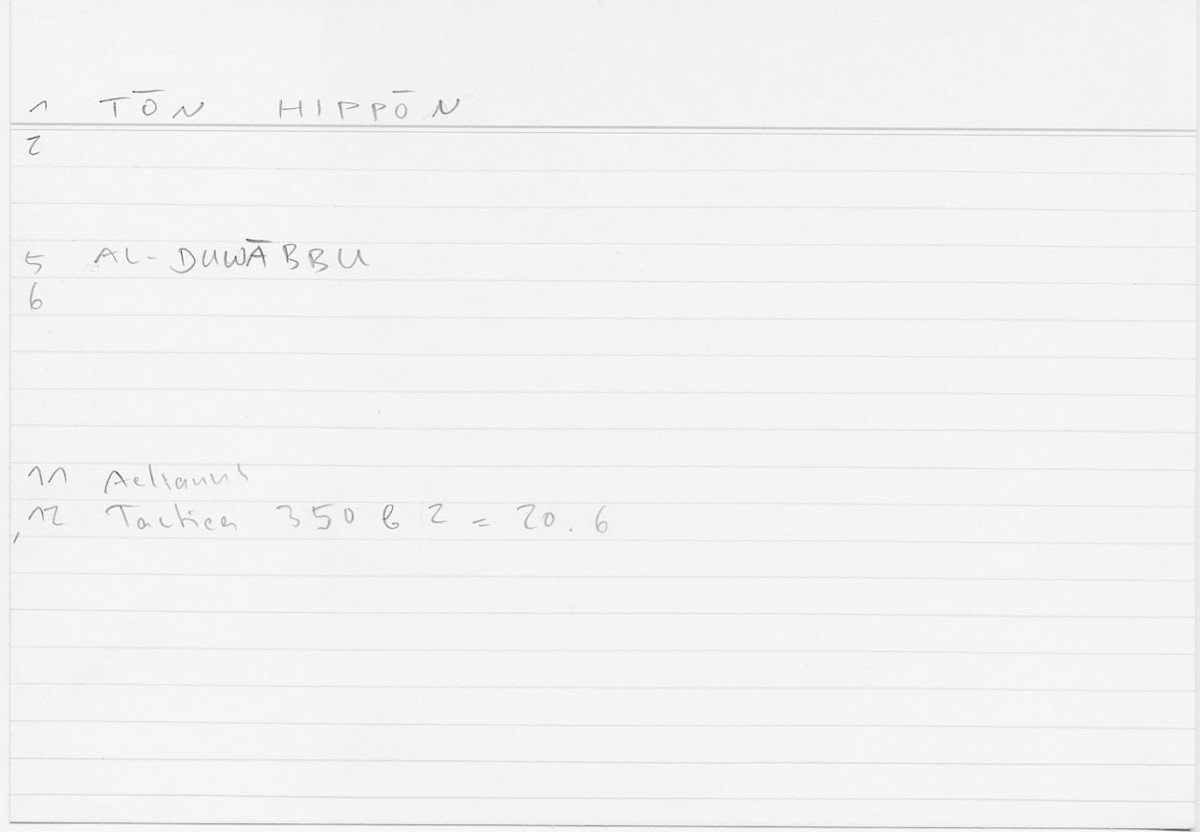 1 TŌN HIPPŌN
2
5 AL-DUWĀBBU
6
11 Aelianus
12 Tactica 350 b 2 = 20.6